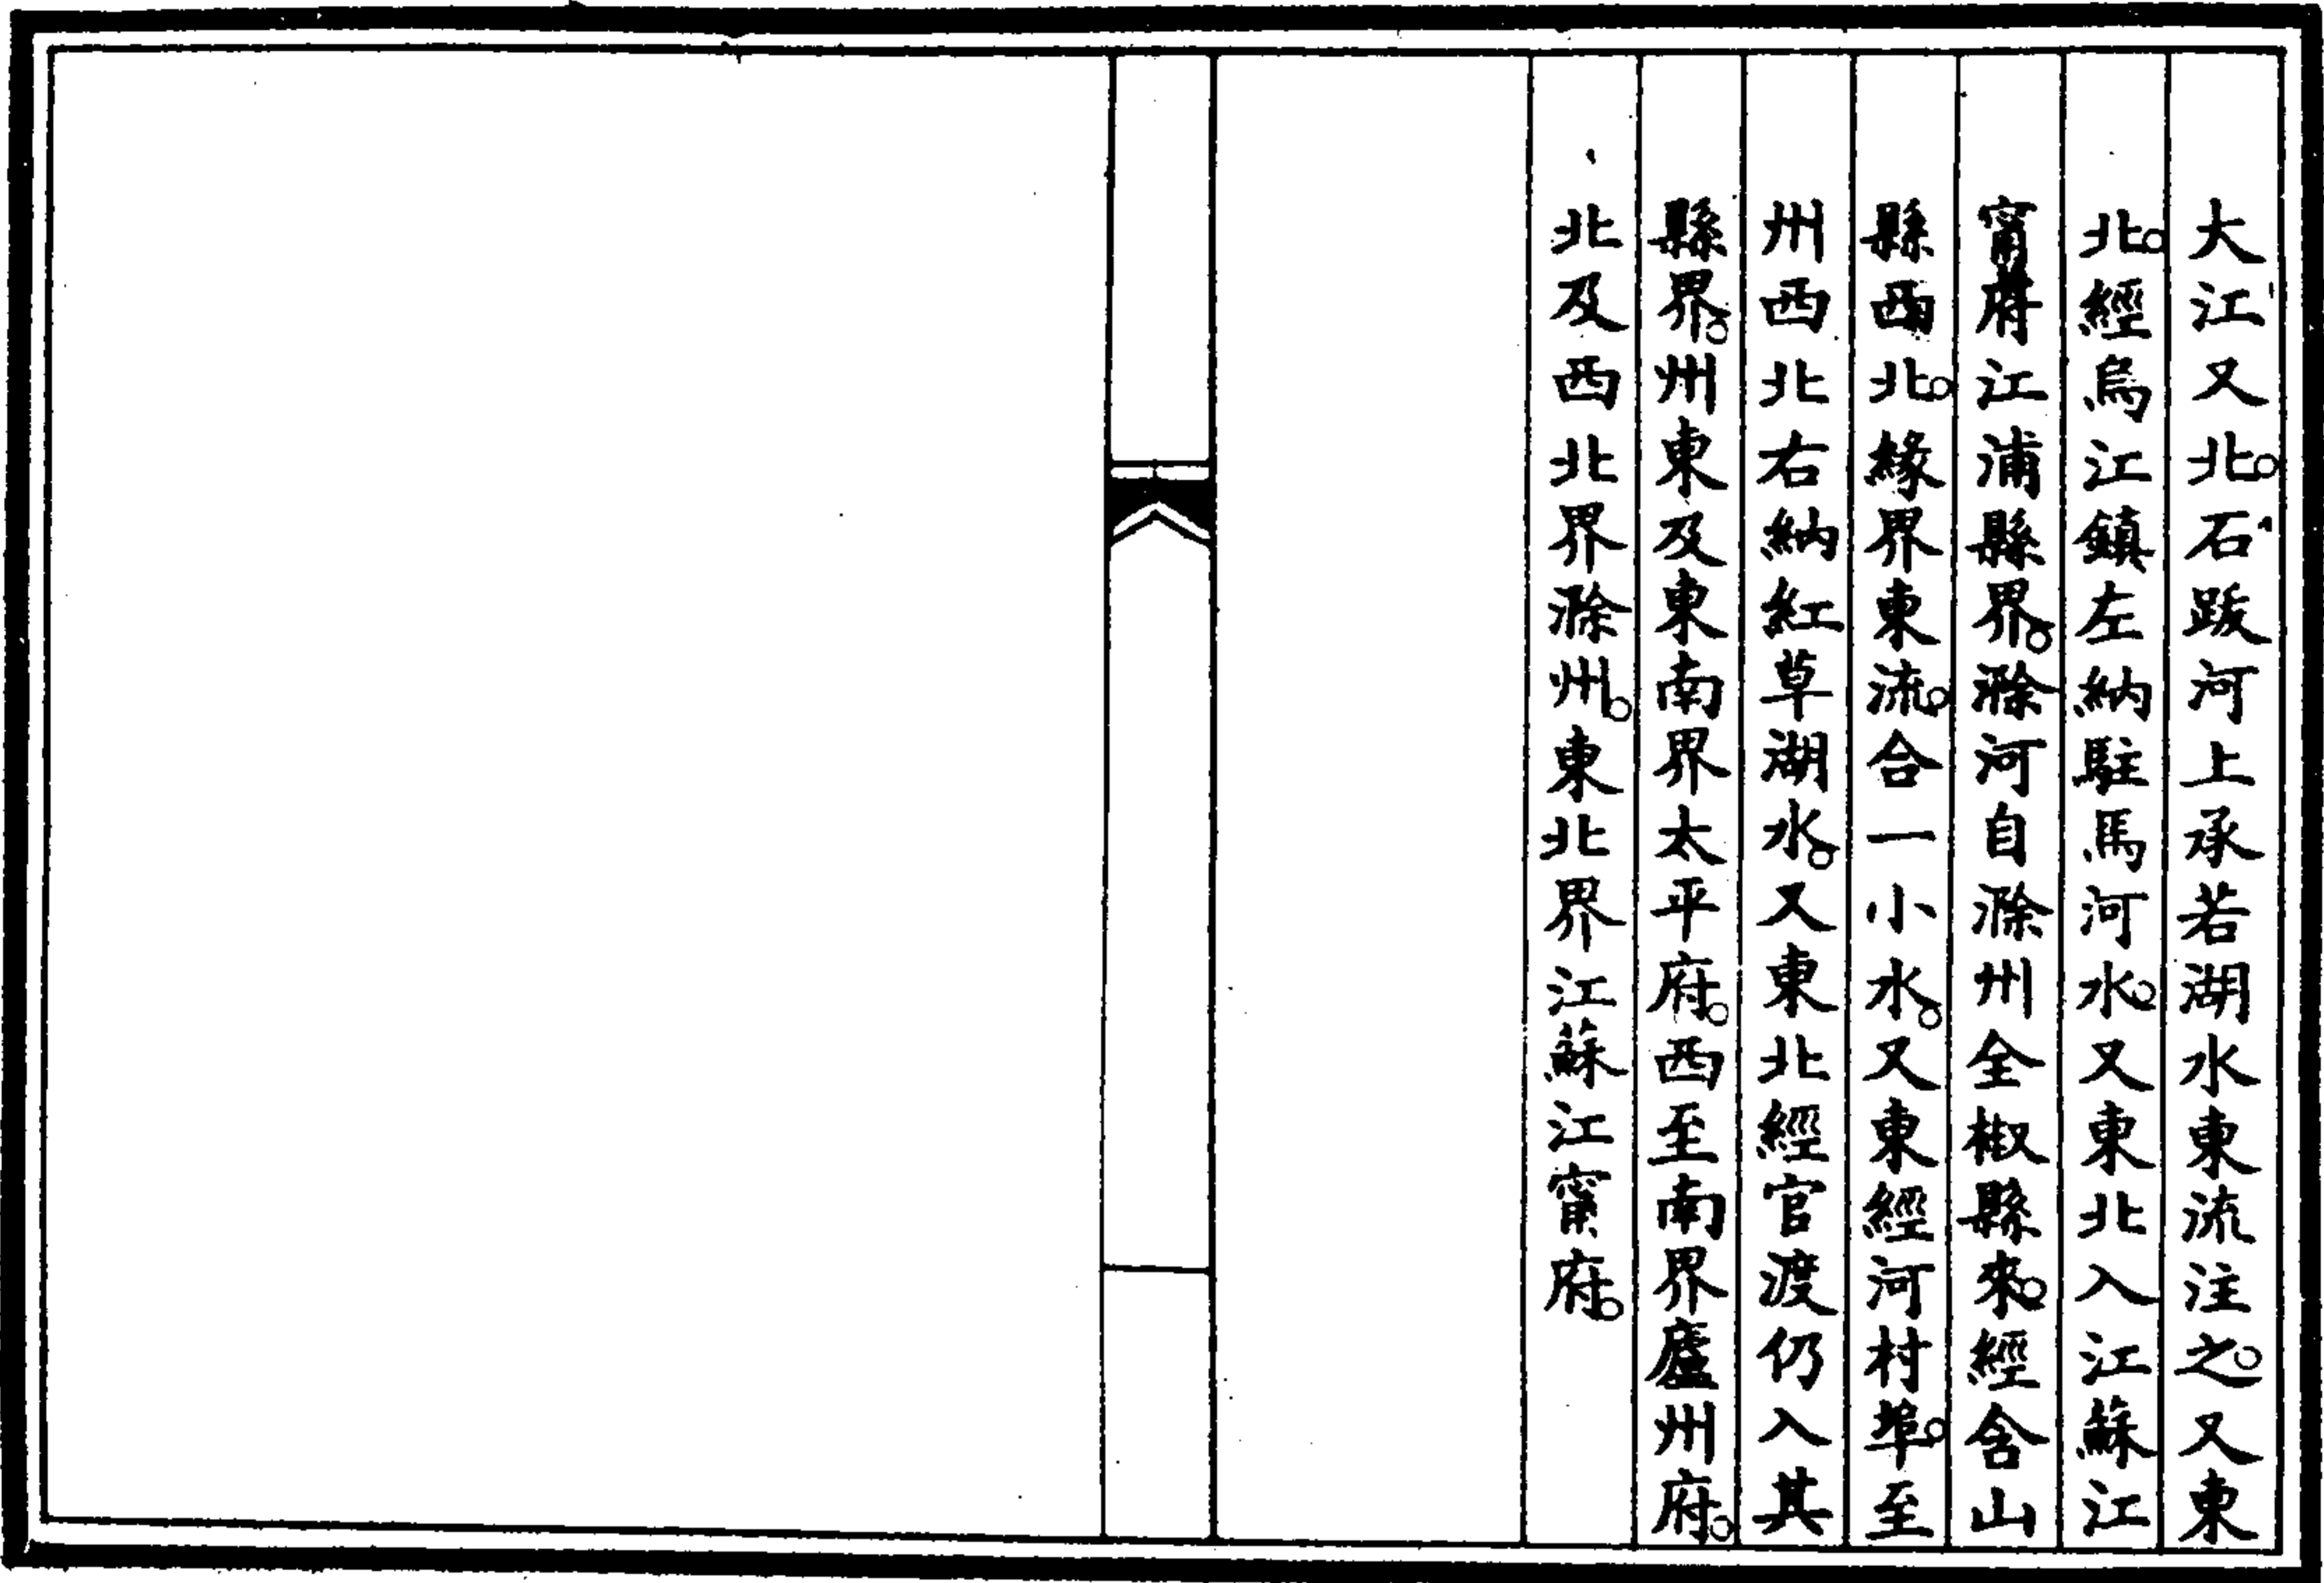 大江又北。石跋河上承若湖水東流注之。又東
北。經烏江鎮左納駐馬河水。又東北入江蘇江
甯府江浦縣界。滁河自滁州全椒縣來。經含山
縣西北。緣界東流。合一小水。又東經河村埠。至
州西北右納紅草湖水。又東北經官渡仍入其
縣界。州東及東南界太平府。西至南界廬州府。
北及西北界滁州。東北界江蘇江甯府。